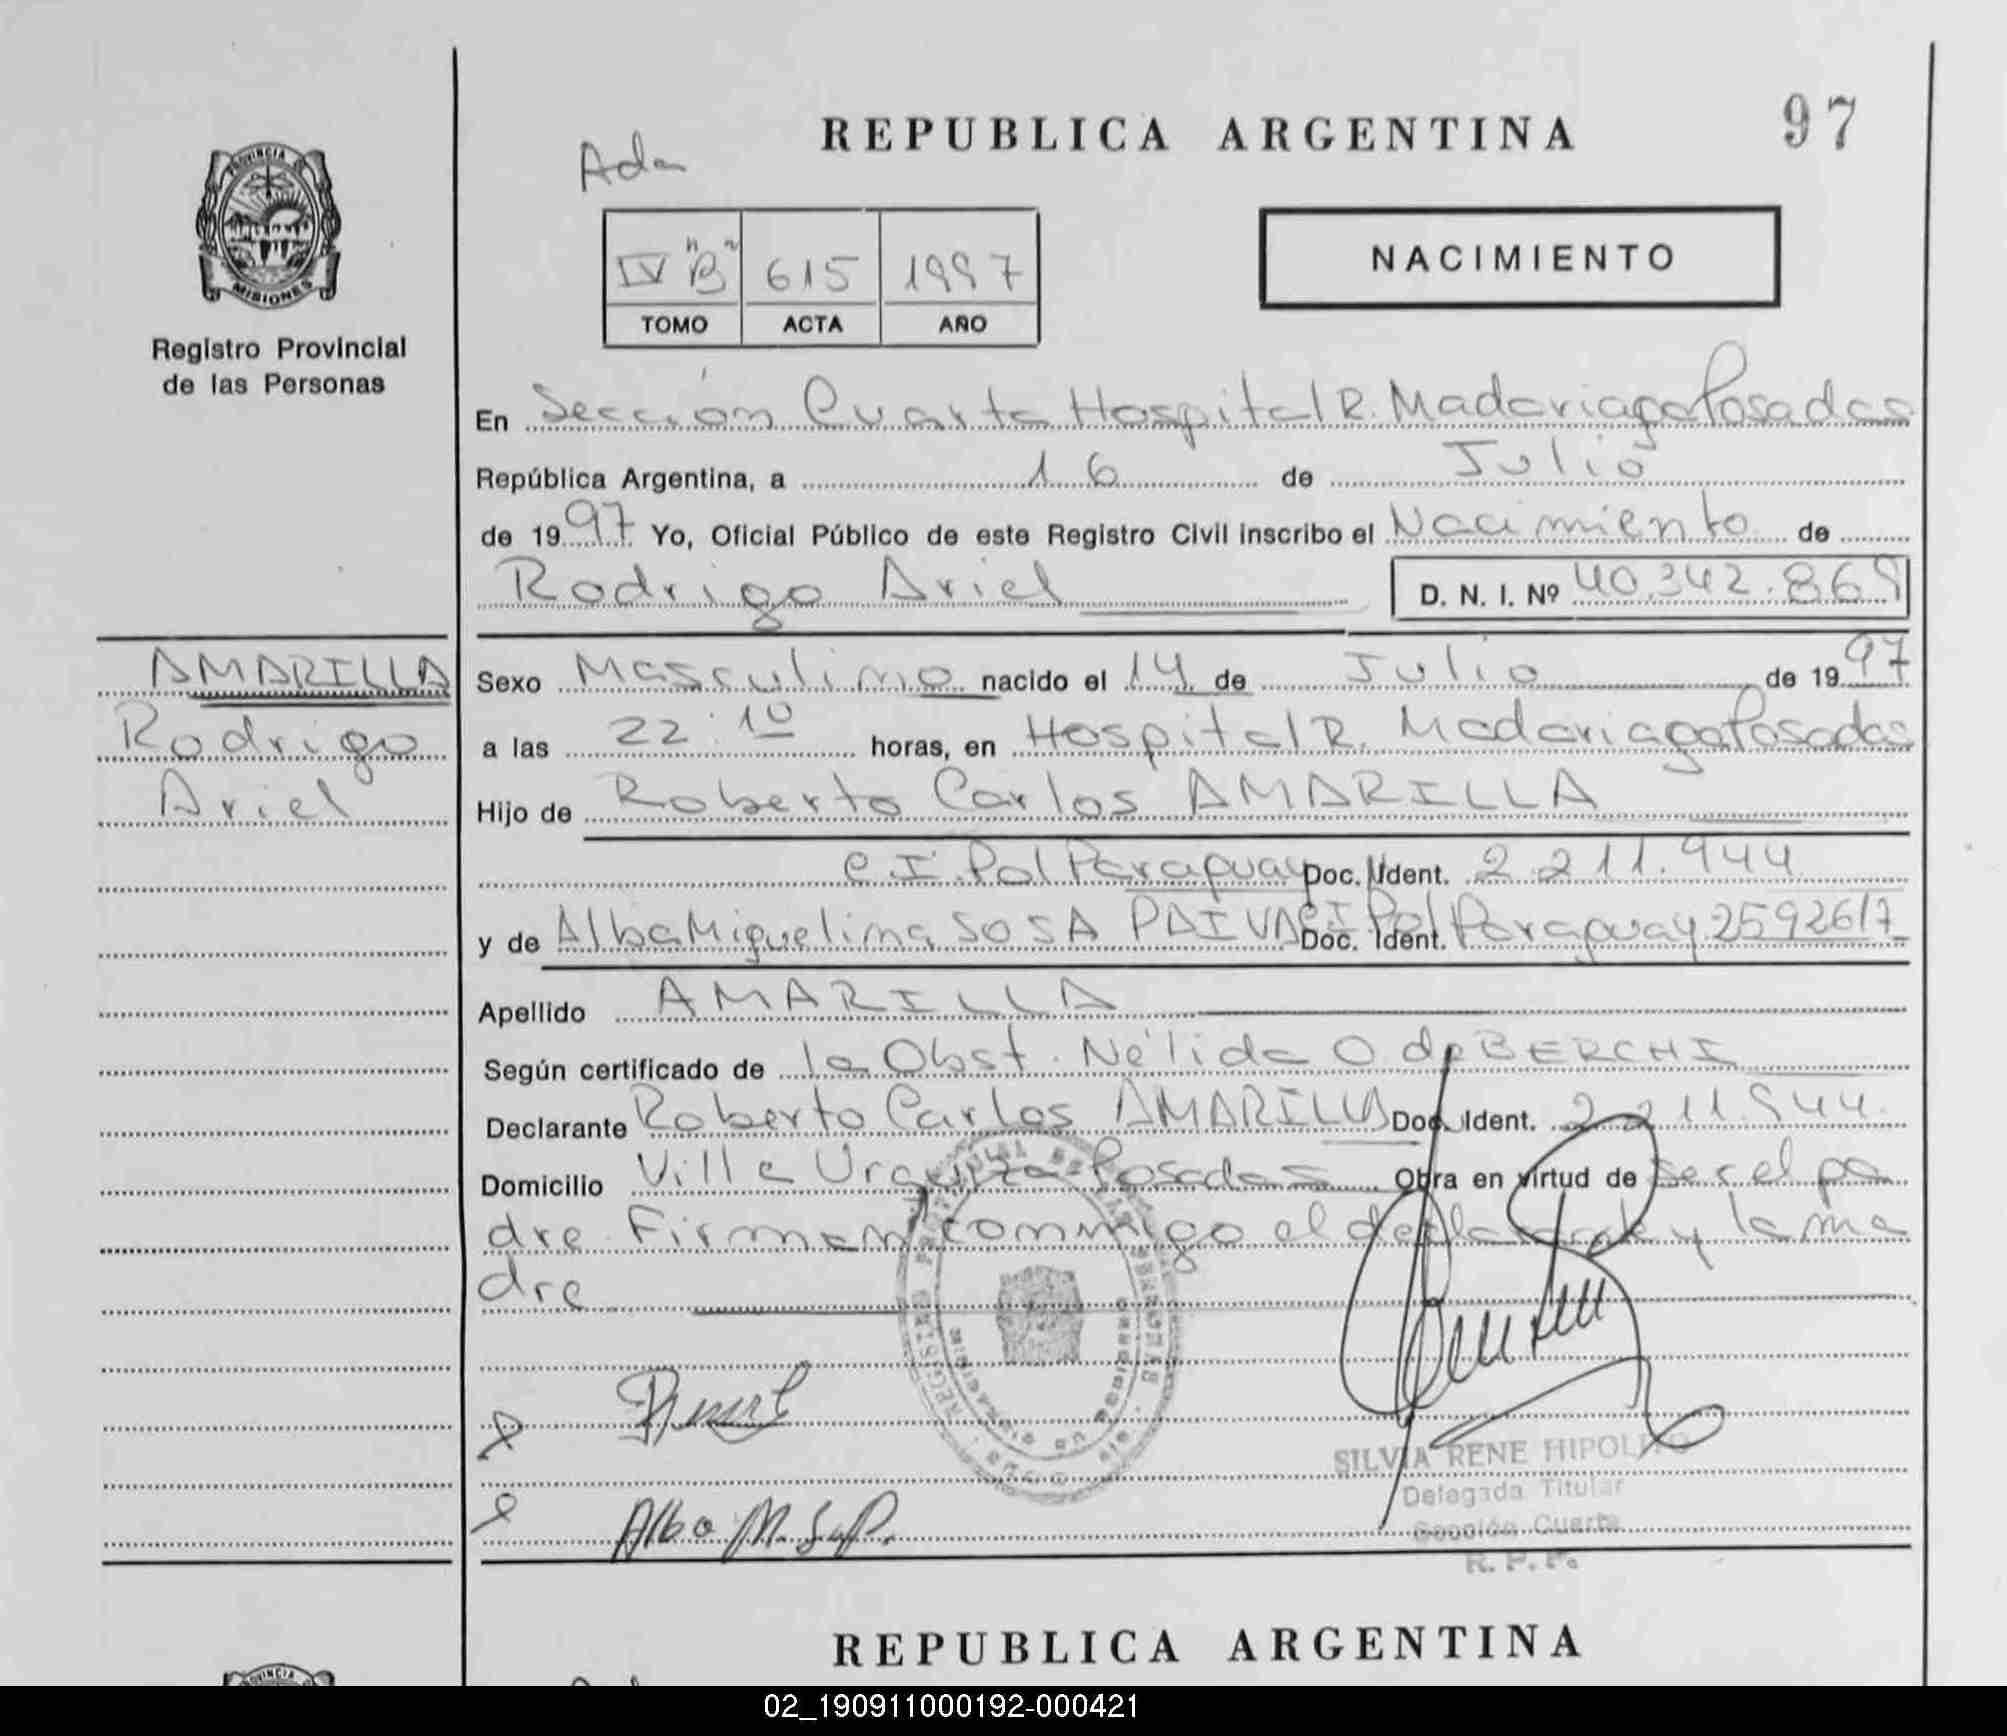 REPUBLICA ARGENTINA
97
Ada
PROVINCIA DE
MISIONES
Registro Provincial
de las Personas
IV "B" 615 1997
TOMO ACTA AÑO
NACIMIENTO
En Sección Cuarta Hospital R. Madariaga Posadas
República Argentina, a 16 de Julio
de 1997 Yo, Oficial Público de este Registro Civil inscribo el Nacimiento de
Rodrigo Ariel D. N. I. Nº 40.342.869
AMARILLA
Rodrigo
Ariel
Sexo Masculino nacido el 14 de Julio de 1997
a las 22:10 horas, en Hospital R. Madariaga Posadas
Hijo de Roberto Carlos AMARILLA
C.I. Pol Paraguay Doc. Ident. 2.211.944
y de Alba Miguelina SOSA PAIVA C I Pol Doc. Ident. Paraguay 2592617
Apellido AMARILLA
Según certificado de la Obst. Nélida O. de BERCHI
Declarante Roberto Carlos AMARILLA Doc. Ident. 2.211.944.
Domicilio Villa Urquiza Posadas Obra en virtud de ser el pa
dre. Firman conmigo el declarante y la ma
dre
Alba M. S. P.
SILVIA RENE HIPOLITO
Delegada Titular
Sección Cuarta
R. P. P.
REPUBLICA ARGENTINA
PROVINCIA
02_190911000192-000421